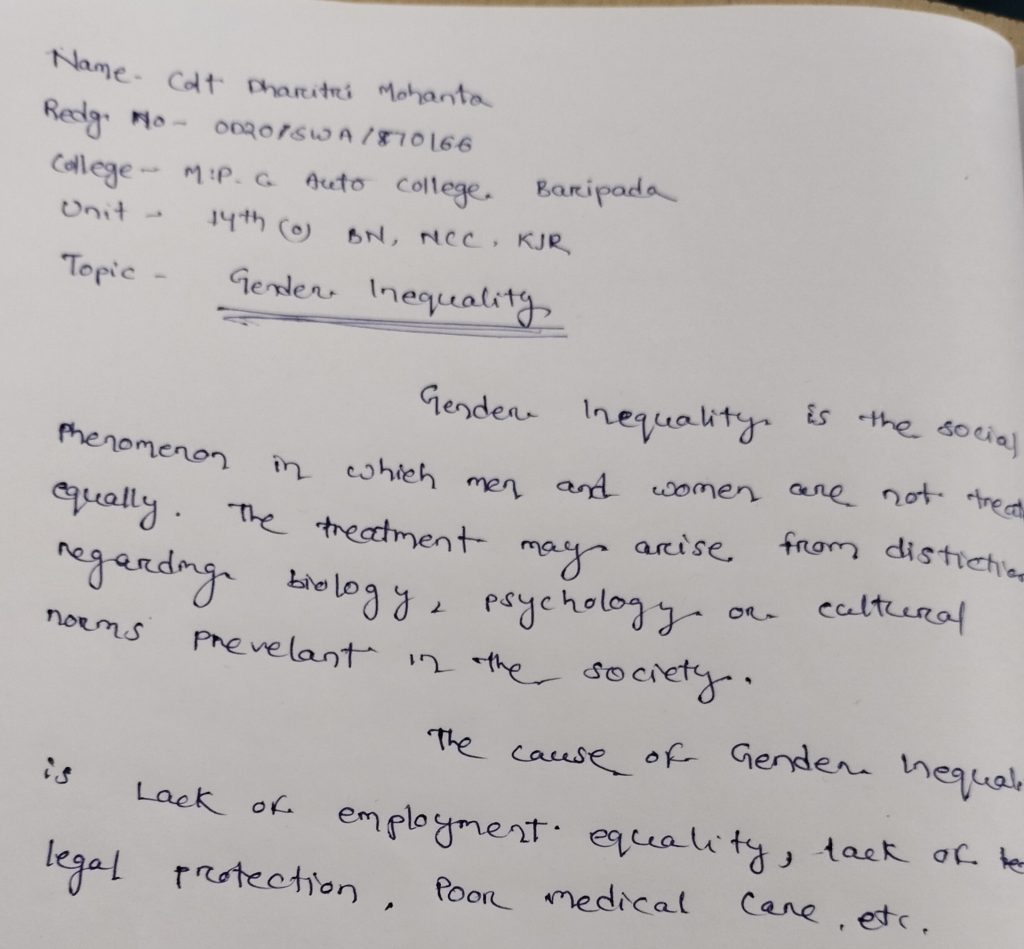 Name- Cdt Dharitri Mohanta
Redg. No - OD20/SWA/870166
College - M.P.C Auto College. Baripada
Unit - 14th (O) BN, NCC, KJR
Topic - Gender Inequality
Gender Inequality is the social
Phenomenon in which men and women are not treat
equally. The treatment may arise from distictio
regarding biology, psychology or cultural
norms prevelant in the society.
The cause of Gender Inequal
is Lack of employment equality, lack of
legal protection, Poor medical care, etc.